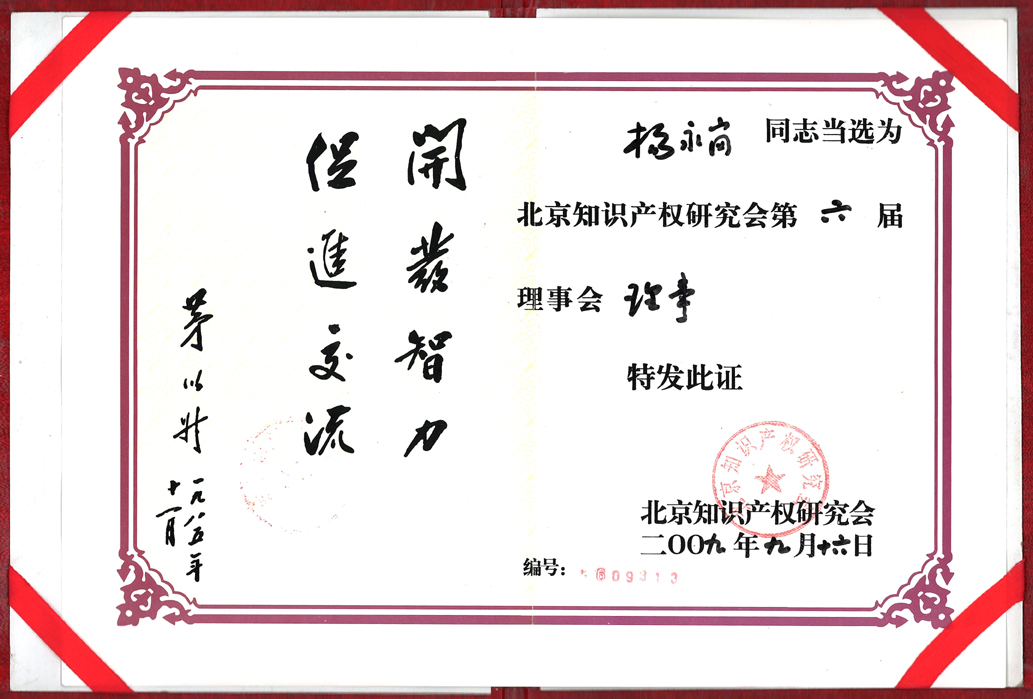 開發智力
促進交流
茅以升
一九八五年
十一月
杨永岗 同志当选为
北京知识产权研究会第 六 届
理事会 理事
特发此证
北京知识产权研究会
北京知识产权研究会
二〇〇九年九月十六日
编号：